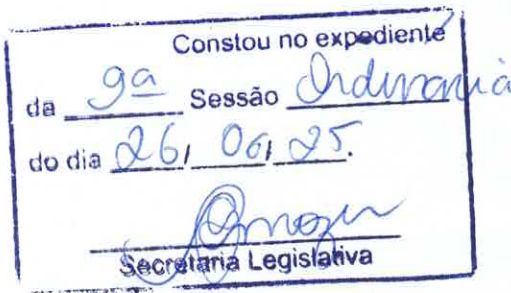 Constou no expediente
da 9ª Sessão Ordinária
do dia 26, 06, 25.
Secretaria Legislativa